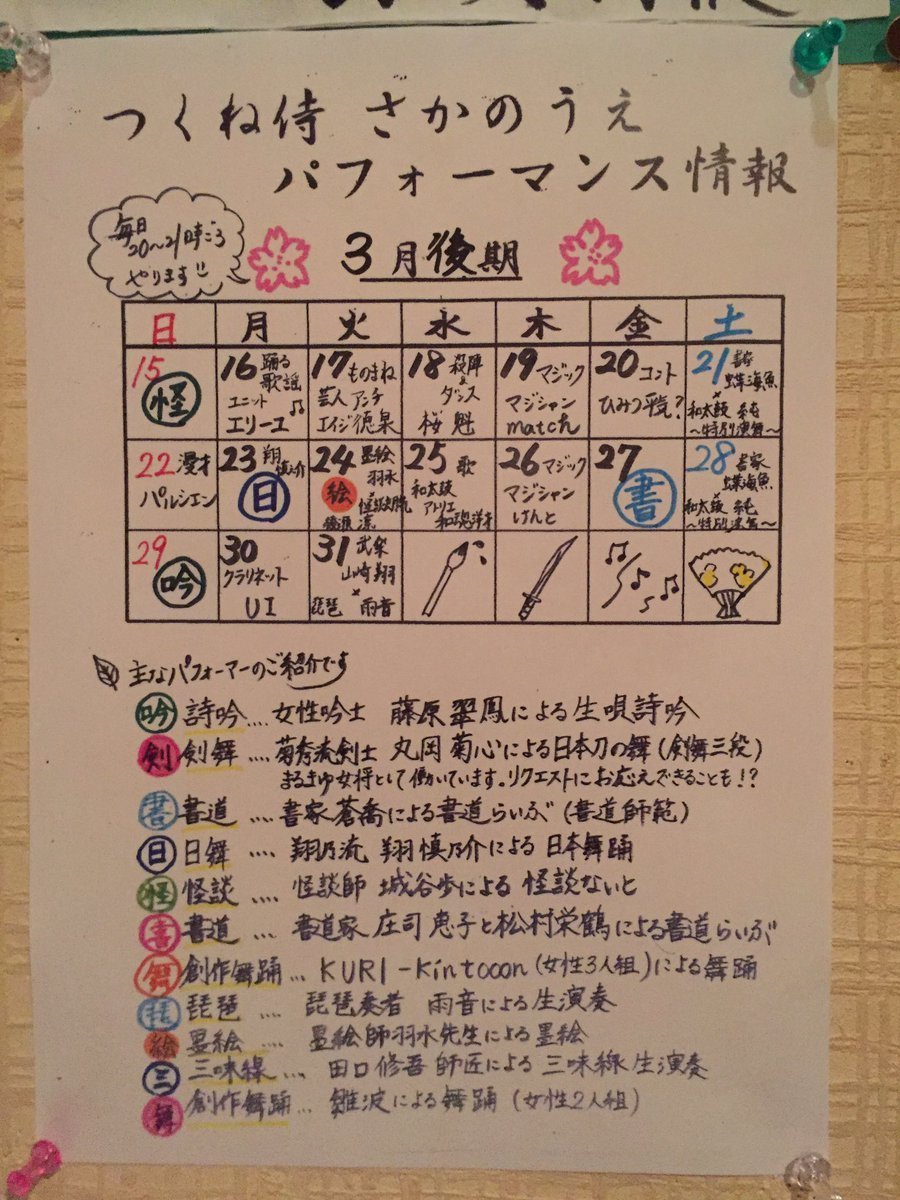 つくね侍 さかのうえ
パフォーマンス情報
毎日
20〜21時ごろ
やります!!
3月後期
日 月 火 水 木 金 土
15 怪
16 踊る
歌謡
ユニット
エリーユ
17 ものまね
芸人 アンチ
エイジ徳泉
18 殺陣
&
ダンス
桜 魁
19 マジック
マジシャン
match
20 コント
ひみつ平気?
21 書家
蝶海魚
×
和太鼓 純
〜特別演舞〜
22 漫才
パルシェン
23 翔
慎乃介
日
24 墨絵
羽水
絵
25 歌
和太鼓
アトリエ
和魂洋才
26 マジック
マジシャン
けんと
27
書
28 書家
蝶海魚
×
和太鼓 純
〜特別演舞〜
29
吟
30
クラリネット
UI
31 武楽
山崎翔
×
琵琶 雨音
主なパフォーマーのご紹介です
吟 詩吟....女性吟士 藤原翠鳳による生唄詩吟
剣 剣舞....菊秀流剣士 丸岡菊心による日本刀の舞(剣舞三段)
まるきゆ女将として働いています。リクエストにお応えできることも!?
書 書道....書家蒼喬による書道らいぶ(書道師範)
日 日舞....翔乃流 翔慎乃介による日本舞踊
怪 怪談....怪談師 城谷歩による怪談ないと
書 書道...書道家 庄司恵子と松村栄鶴による書道らいぶ
舞 創作舞踊...KURI-Kintooon(女性3人組)による舞踊
琵 琵琶....琵琶奏者 雨音による生演奏
絵 墨絵....墨絵師羽水先生による墨絵
三 三味線...田口修吾 師匠による三味線生演奏
舞 創作舞踊...難波による舞踊(女性2人組)